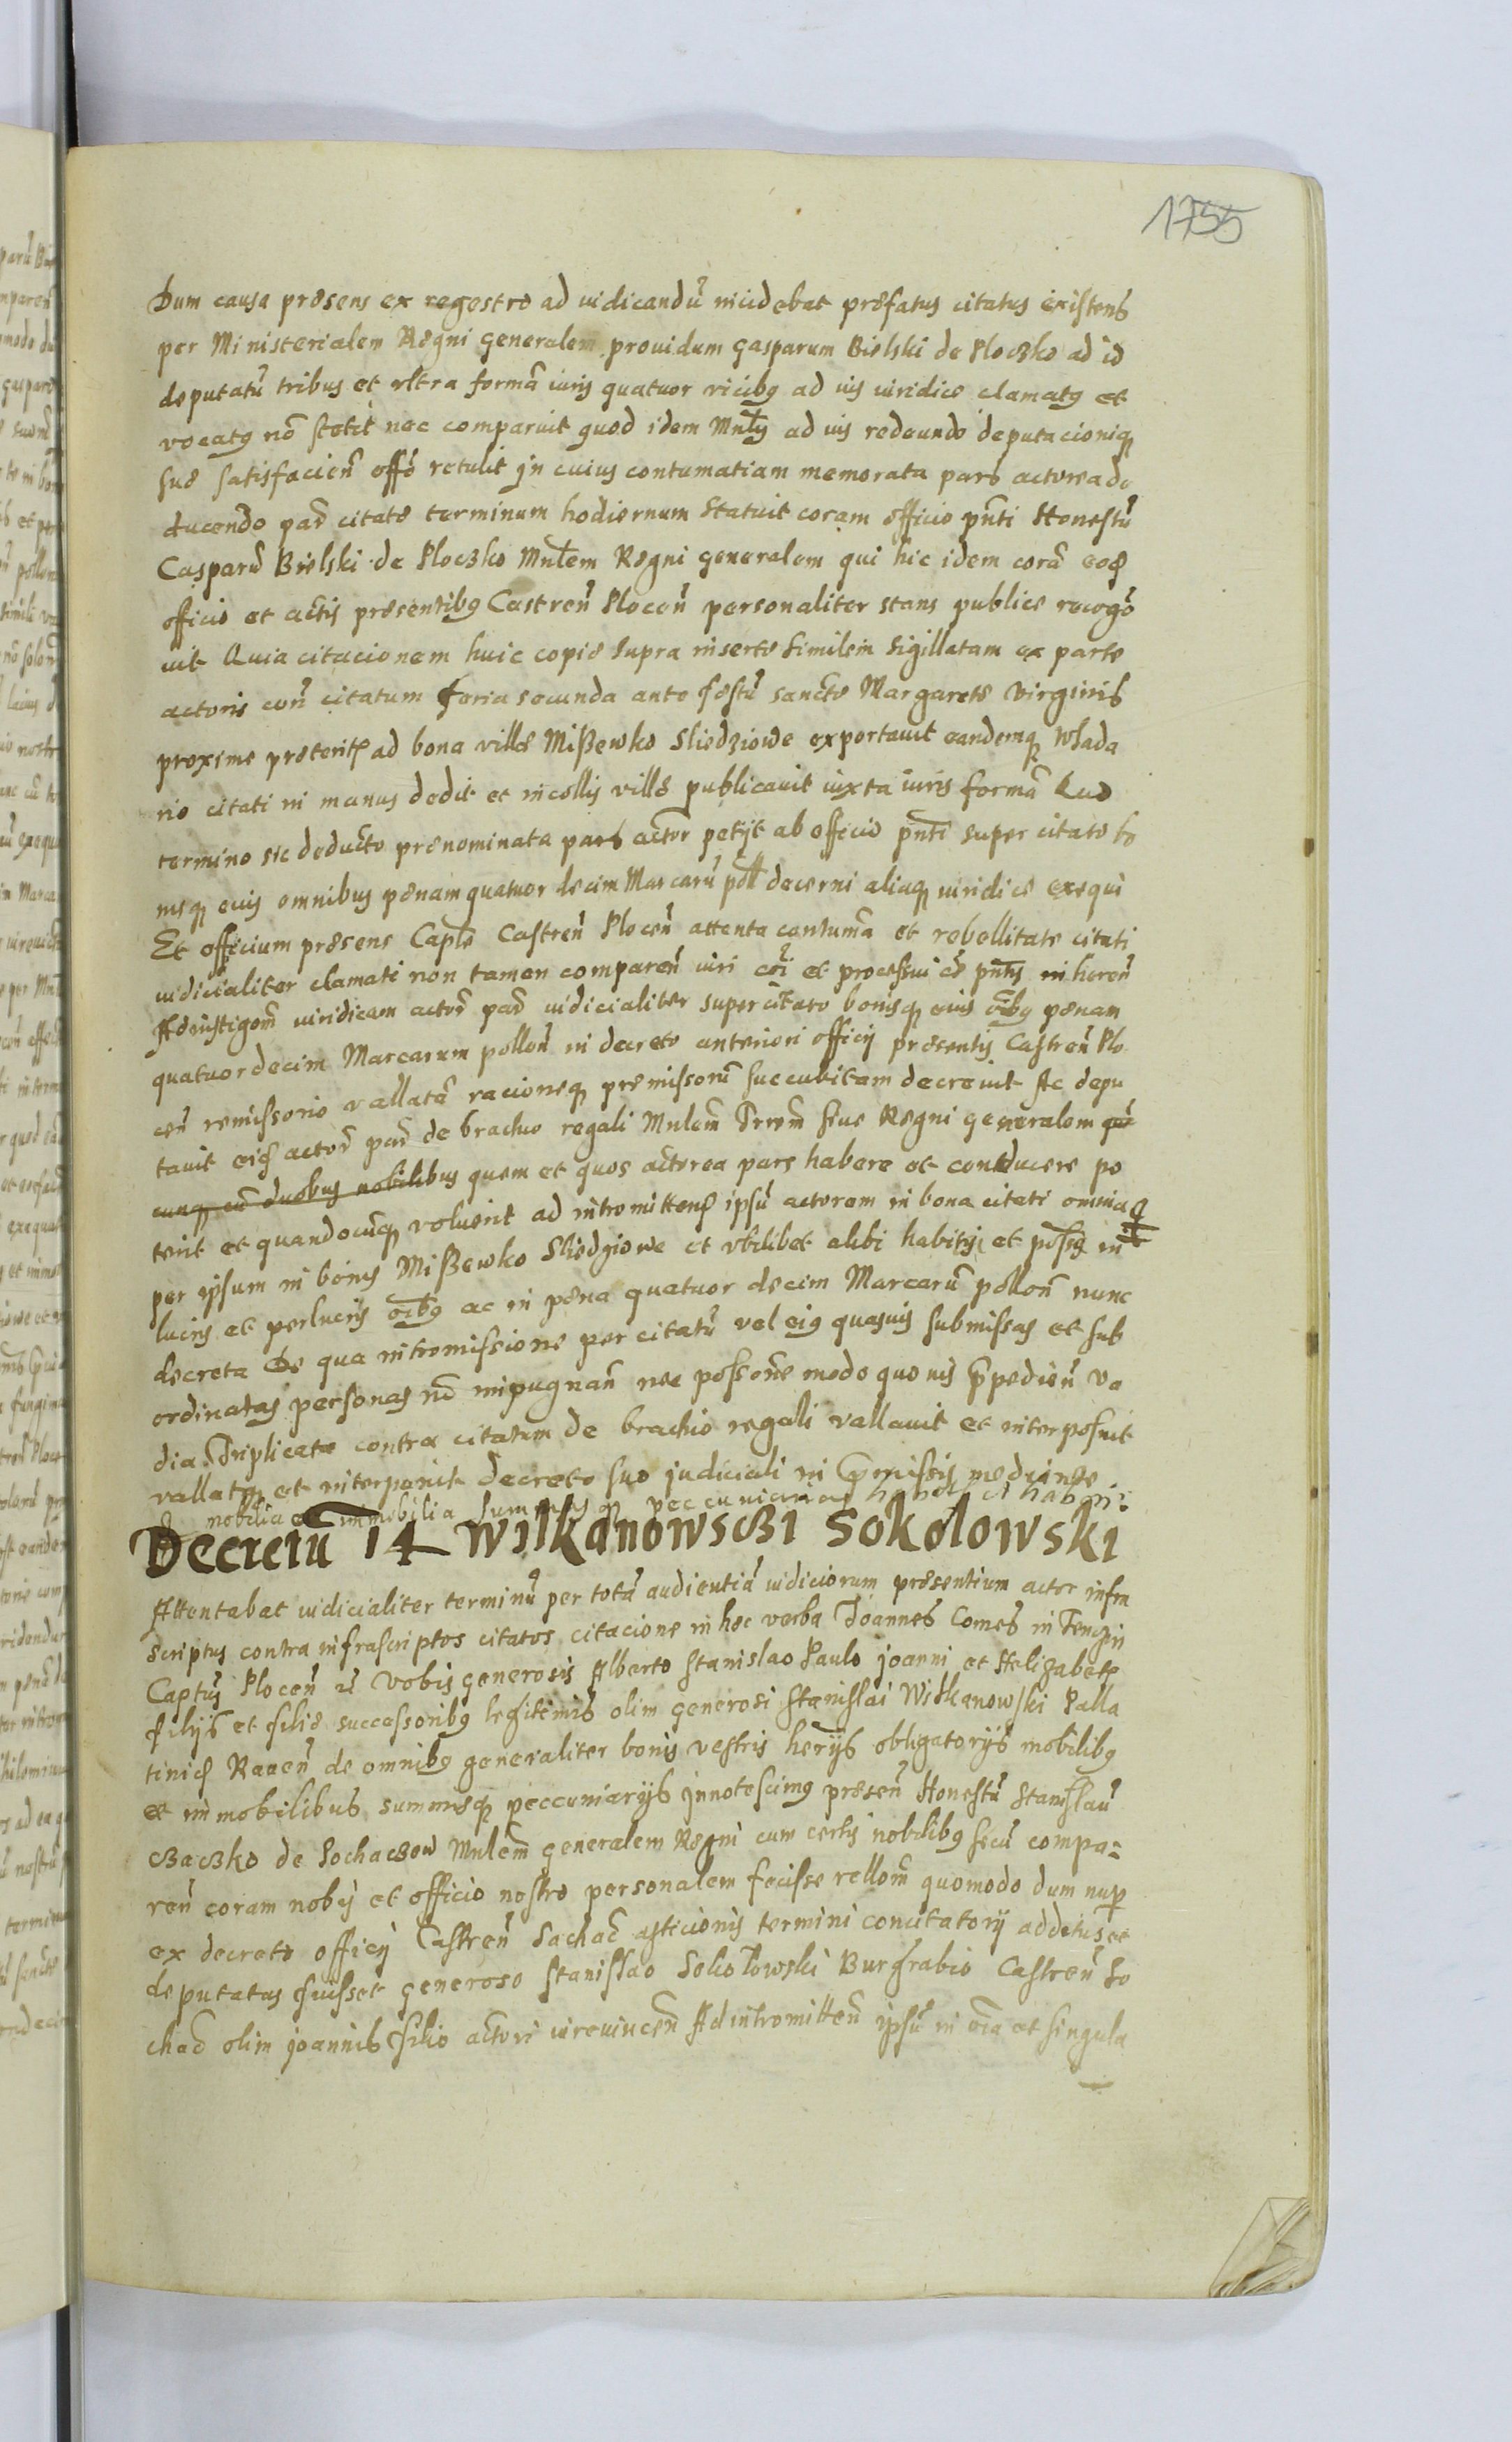 1755
Dum causa præsens ex regestro ad iudicandũ incidebat præfatus citatus existens
per Ministerialem Regni generalem prouidum Gasparum Bielski de Ploczko ad id
deputatũ tribus et vltra formã iuris quatuor vicibq ad ius iuridice clamatq et
vocatq nõ stetit nec comparuit quod idem Mnłis ad ius redeundo deputacioniq
suæ satisfacieñ offõ retulit in cuius contumatiam memorata pars actorea de
ducendo par̃ citatæ terminum hodiernum statuit coram officio pñti Honestũ
Casparũ Bielski de Ploczko Mnłem Regni generalem qui hic idem corã eođ
officio et actis præsentibq Castreñ Ploceñ personaliter stans publice recogõ
uit Quia citacionem huic copiæ supra insertæ similem sigillatam ex parte
actoris coñ citatum feria secunda ante festũ sanctæ Margaretæ virginis
proxime præteritʒ ad bona villæ Mißewko Sliedziowe exportauit eandemq Wlada
rio citati in manus dedit et incollis villæ publicauit iuxta iuris formã Quo
termino sic deducto prænominata pars actor petijt ab officio pñti super citato bo
nisq eius omnibus pænam quatuor decim Marcarũ poll decerni aliaq iuridice exequi
Et officium præsens Caple Castreñ Ploceñ attenta contumã et rebellitate citati
iudicialiter clamati non tamen compareñ iuri cõi et processui eẽ pñtis in hereñ
Ad instigom̃ iuridicam actoř par̃ iudicialiter super citato bonisq eius õibq pænam
quatuordecim Marcarum polloñ in decreto anteriori officij præsentis Castreñ Plo
ceñ remissorio vallatã racioneq præmissorũ succubitam decreuit Ac depu
tauit eiđ actoř par̃ de brachio regali Mnlem̃ Trrem̃ siue Regni generalem quẽ
cunq cũ duobus nobilibus quem et quos actorea pars habere et conducere po
terit et quandocũq voluerit ad intromittenđ ipsũ actorem in bona citati omnia
per ipsum in bonis Mißewko Sliedziowe et vbilibet alibi habitis et possis in
lucris et perlucris õibq ac in pæna quatuor decim Marcarũ polloñ nunc
decreta De qua intromissione per citatũ vel eiq quasuis submissas et sub
ordinatas personas nõ inpugnañ nec possoñe modo quo uis p̃pedieñ va
dia Triplicata contra citatum de brachio regali vallauit et interposuit
vallatq et interponit decreto suo judiciali in p̃missis mediante
mobilia et immobilia summasq peccuniarias
Decretũ 14 Wilkanowsczi Sokolowski
Attentabat iudicialiter terminũ per totã audientiã iudiciorum præsentium actor infra
scriptus contra infrascriptos citatos citacione in hæc verba Joannes Comes in Tenczin
Captũs Ploceñ ꝛč Vobis generosis Alberto Stanislao Paulo joanni et Helizabetæ
filijs et filiæ successoribq legitimis olim generosi Stanislai Wilkanowski Palla
tiniđ Raueñ de omnibq generaliter bonis vestris herijs obligatorijs mobilibq
et immobilibus summisq peccuniarijs Innotescimq præseñ Honestũ Stanislaũ
czaczko de Sochaczow Mnlem̃ generalem Regni cum certis nobilibq secũ compa=
reñ coram nobis et officio nostro personalem fecisse rellom̃ quomodo dum nup
ex decreto officij Castreñ Sachač asticionis termini concitatorij additus et
deputatus fuisset generoso Stanislao Sokolowski Burgrabio Castreñ So
chač olim joannis filio actori iureuinceñ Ad intromitteñ ipsũ in õia et singula